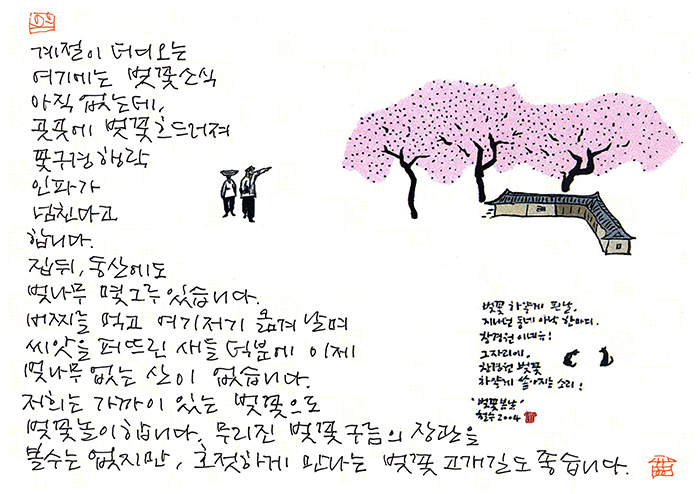 계절이 더디오는
여기에는 벚꽃소식
아직 없는데,
곳곳에 벚꽃흐드러져
꽃구경 행락
인파가
넘친다고
합니다.
집뒤, 동산에도
벚나무 몇그루 있습니다.
버찌를 먹고 여기저기 옮겨 날며
씨앗을 퍼뜨린 새들 덕분에 이제
벚나무 없는 산이 없습니다.
저희는 가까이 있는 벚꽃으로
벚꽃놀이합니다. 무리진 벚꽃구름의 장관을
볼수는 없지만, 호젓하게 만나는 벚꽃 고개길도 좋습니다.
벚꽃 하얗게 핀날.
지나던 동네 아낙 한마디.
창경원이네유!
그자리에.
창경원 벚꽃
하얗게 쏟아지는 소리!
'벚꽃봄날'
철수 2004